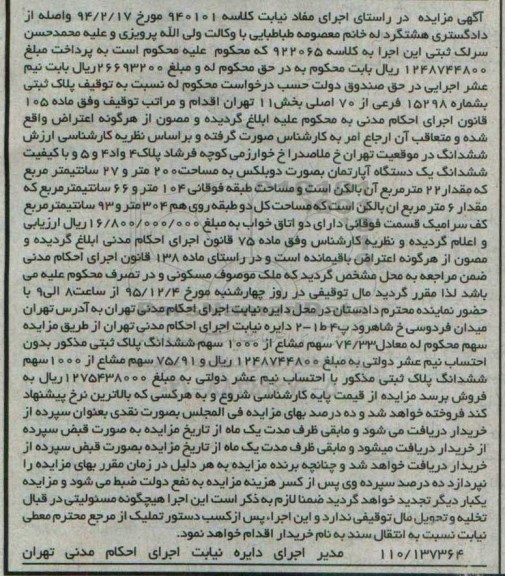 آگهی مزایده در راستای اجرای مفاد نیابت کلاسه ۹۴۰۱۰۱ مورخ ۹۴/۲/۱۷ واصله از
دادگستری هشتگرد له خانم معصومه طباطبایی با وکالت ولی الله پرویزی و علیه محمدحسن
سرلک ثبتی این اجرا به کلاسه ۹۲۲۰۶۵ که محکوم علیه محکوم است به پرداخت مبلغ
۱۲۴۸۷۴۴۸۰۰ ریال بابت محکوم به در حق محکوم له و مبلغ ۲۶۶۹۳۲۰۰ریال بابت نیم
عشر اجرایی در حق صندوق دولت حسب درخواست محکوم له نسبت به توقیف پلاک ثبتی
بشماره ۱۵۲۹۸ فرعی از ۷۰ اصلی بخش۱۱ تهران اقدام و مراتب توقیف وفق ماده ۱۰۵
قانون اجرای احکام مدنی به محکوم علیه ابلاغ گردیده و مصون از هرگونه اعتراض واقع
شده و متعاقب آن ارجاع امر به کارشناس صورت گرفته و براساس نظریه کارشناسی ارزش
ششدانگ در موقعیت تهران خ ملاصدرا خ خوارزمی کوچه فرشاد پلاک۴ واد۴ و ۵ و با کیفیت
ششدانگ یک دستگاه آپارتمان بصورت دوبلکس به مساحت۲۰۰ متر و ۲۷ سانتیمتر مربع
که مقدار ۲۲ مترمربع آن بالکن است و مساحت طبقه فوقانی ۱۰۴ متر و ۶۶ سانتیمترمربع که
مقدار ۶ متر مربع ان بالکن است که مساحت کل دو طبقه روی هم ۳۰۴متر و ۹۳ سانتیمترمربع
کف سرامیک قسمت فوقانی دارای دو اتاق خواب به مبلغ ۱۶/۸۰۰/۰۰۰/۰۰۰ریال ارزیابی
و اعلام گردیده و نظریه کارشناس وفق ماده ۷۵ قانون اجرای احکام مدنی ابلاغ گردیده و
مصون از هرگونه اعتراض باقیمانده است و در راستای ماده ۱۳۸ قانون اجرای احکام مدنی
ضمن مراجعه به محل مشخص گردید که ملک موصوف مسکونی و در تصرف محکوم علیه می
باشد لذا مقرر گردید مال توقیفی در روز چهارشنبه مورخ ۹۵/۱۲/۴ از ساعت۸ الی۹ با
حضور نماینده محترم دادستان در محل دایره نیابت اجرای احکام مدنی تهران به آدرس تهران
میدان فردوسی خ شاهرود پ۴ ط۱-۲ دایره نیابت اجرای احکام مدنی تهران از طریق مزایده
سهم محکوم له معادل۷۴/۳۳ سهم مشاع از ۱۰۰۰ سهم ششدانگ پلاک ثبتی مذکور بدون
احتساب نیم عشر دولتی به مبلغ ۱۲۴۸۷۴۴۸۰۰ ریال و ۷۵/۹۱ سهم مشاع از ۱۰۰۰سهم
ششدانگ پلاک ثبتی مذکور با احتساب نیم عشر دولتی به مبلغ ۱۲۷۵۴۳۸۰۰۰ریال به
فروش برسد مزایده از قیمت پایه کارشناسی شروع و به هرکسی که بالاترین نرخ پیشنهاد
کند فروخته خواهد شد و ده درصد بهای مزایده فی المجلس بصورت نقدی بعنوان سپرده از
خریدار دریافت می شود و مابقی ظرف مدت یک ماه از تاریخ مزایده به صورت قبض سپرده
از خریدار دریافت میشود و مابقی ظرف مدت یک ماه از تاریخ مزایده بصورت قبض سپرده از
خریدار دریافت خواهد شد و چنانچه برنده مزایده به هر دلیل در زمان مقرر بهای مزایده را
نپردازد ده درصد سپرده وی پس از کسر هزینه مزایده به نفع دولت ضبط می شود و مزایده
یکبار دیگر تجدید خواهد گردید ضمنا لازم به ذکر است این اجرا هیچگونه مسئولیتی در قبال
تخلیه و تحویل مال توقیفی ندارد و این اجرا، پس از کسب دستور تملیک از مرجع محترم معطی
نیابت نسبت به انتقال سند به نام خریدار اقدام خواهد نمود.
۱۱۰/۱۳۷۳۶۴ مدیر اجرای دایره نیابت اجرای احکام مدنی تهران